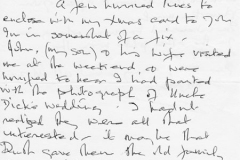 A few hurried lines to
enclose with my Xmas card to you
I'm in somewhat of a fix.
John, (my son) & his wife visited
me at the weekend, & were
horrified to hear I had parted
with the photograph of Uncle
Dickie wedding. I hadn't
realized they were all that
interested. it maybe that
Ruth gave them the old family